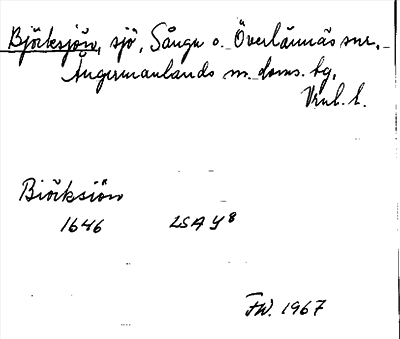 Björksjön, sjö, Sånga o. Överlännäs snr,
Ångermanlands m. doms. tg,
Vnl. l.
Biörksiön
1646 LSA Y 8
FW. 1967